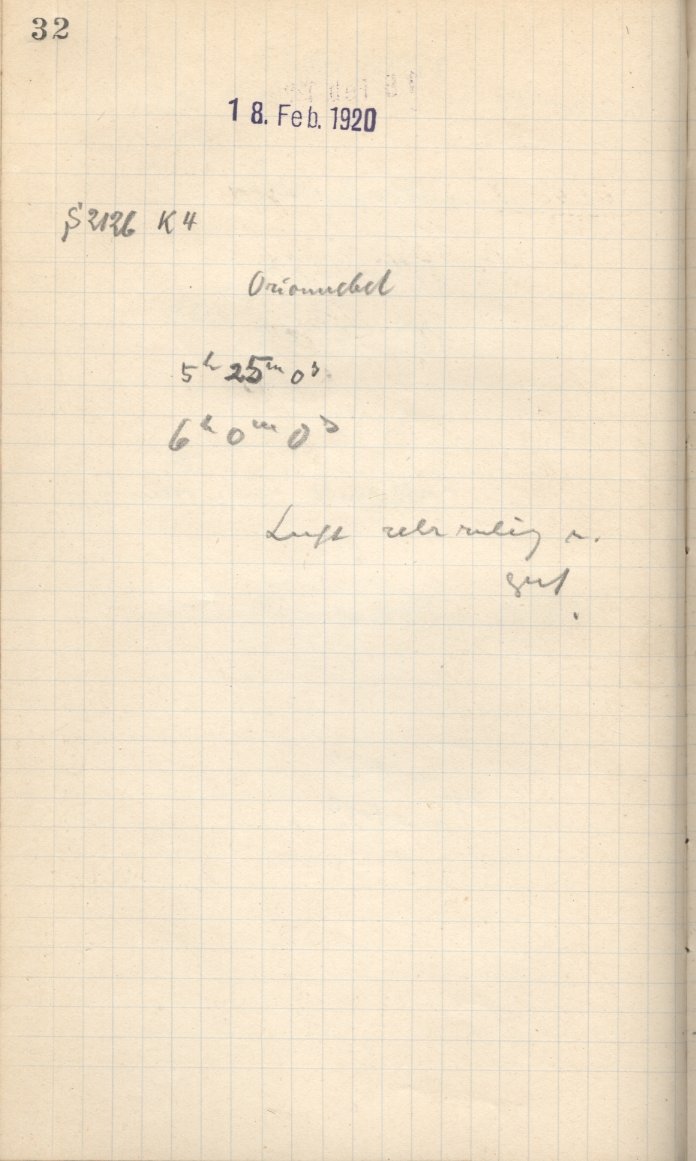 32
18. Feb. 1920
S 2126 K 4
Orionnebel
5h 25m 0s
6h 0m 0s
Luft sehr ruhig u.
gut.